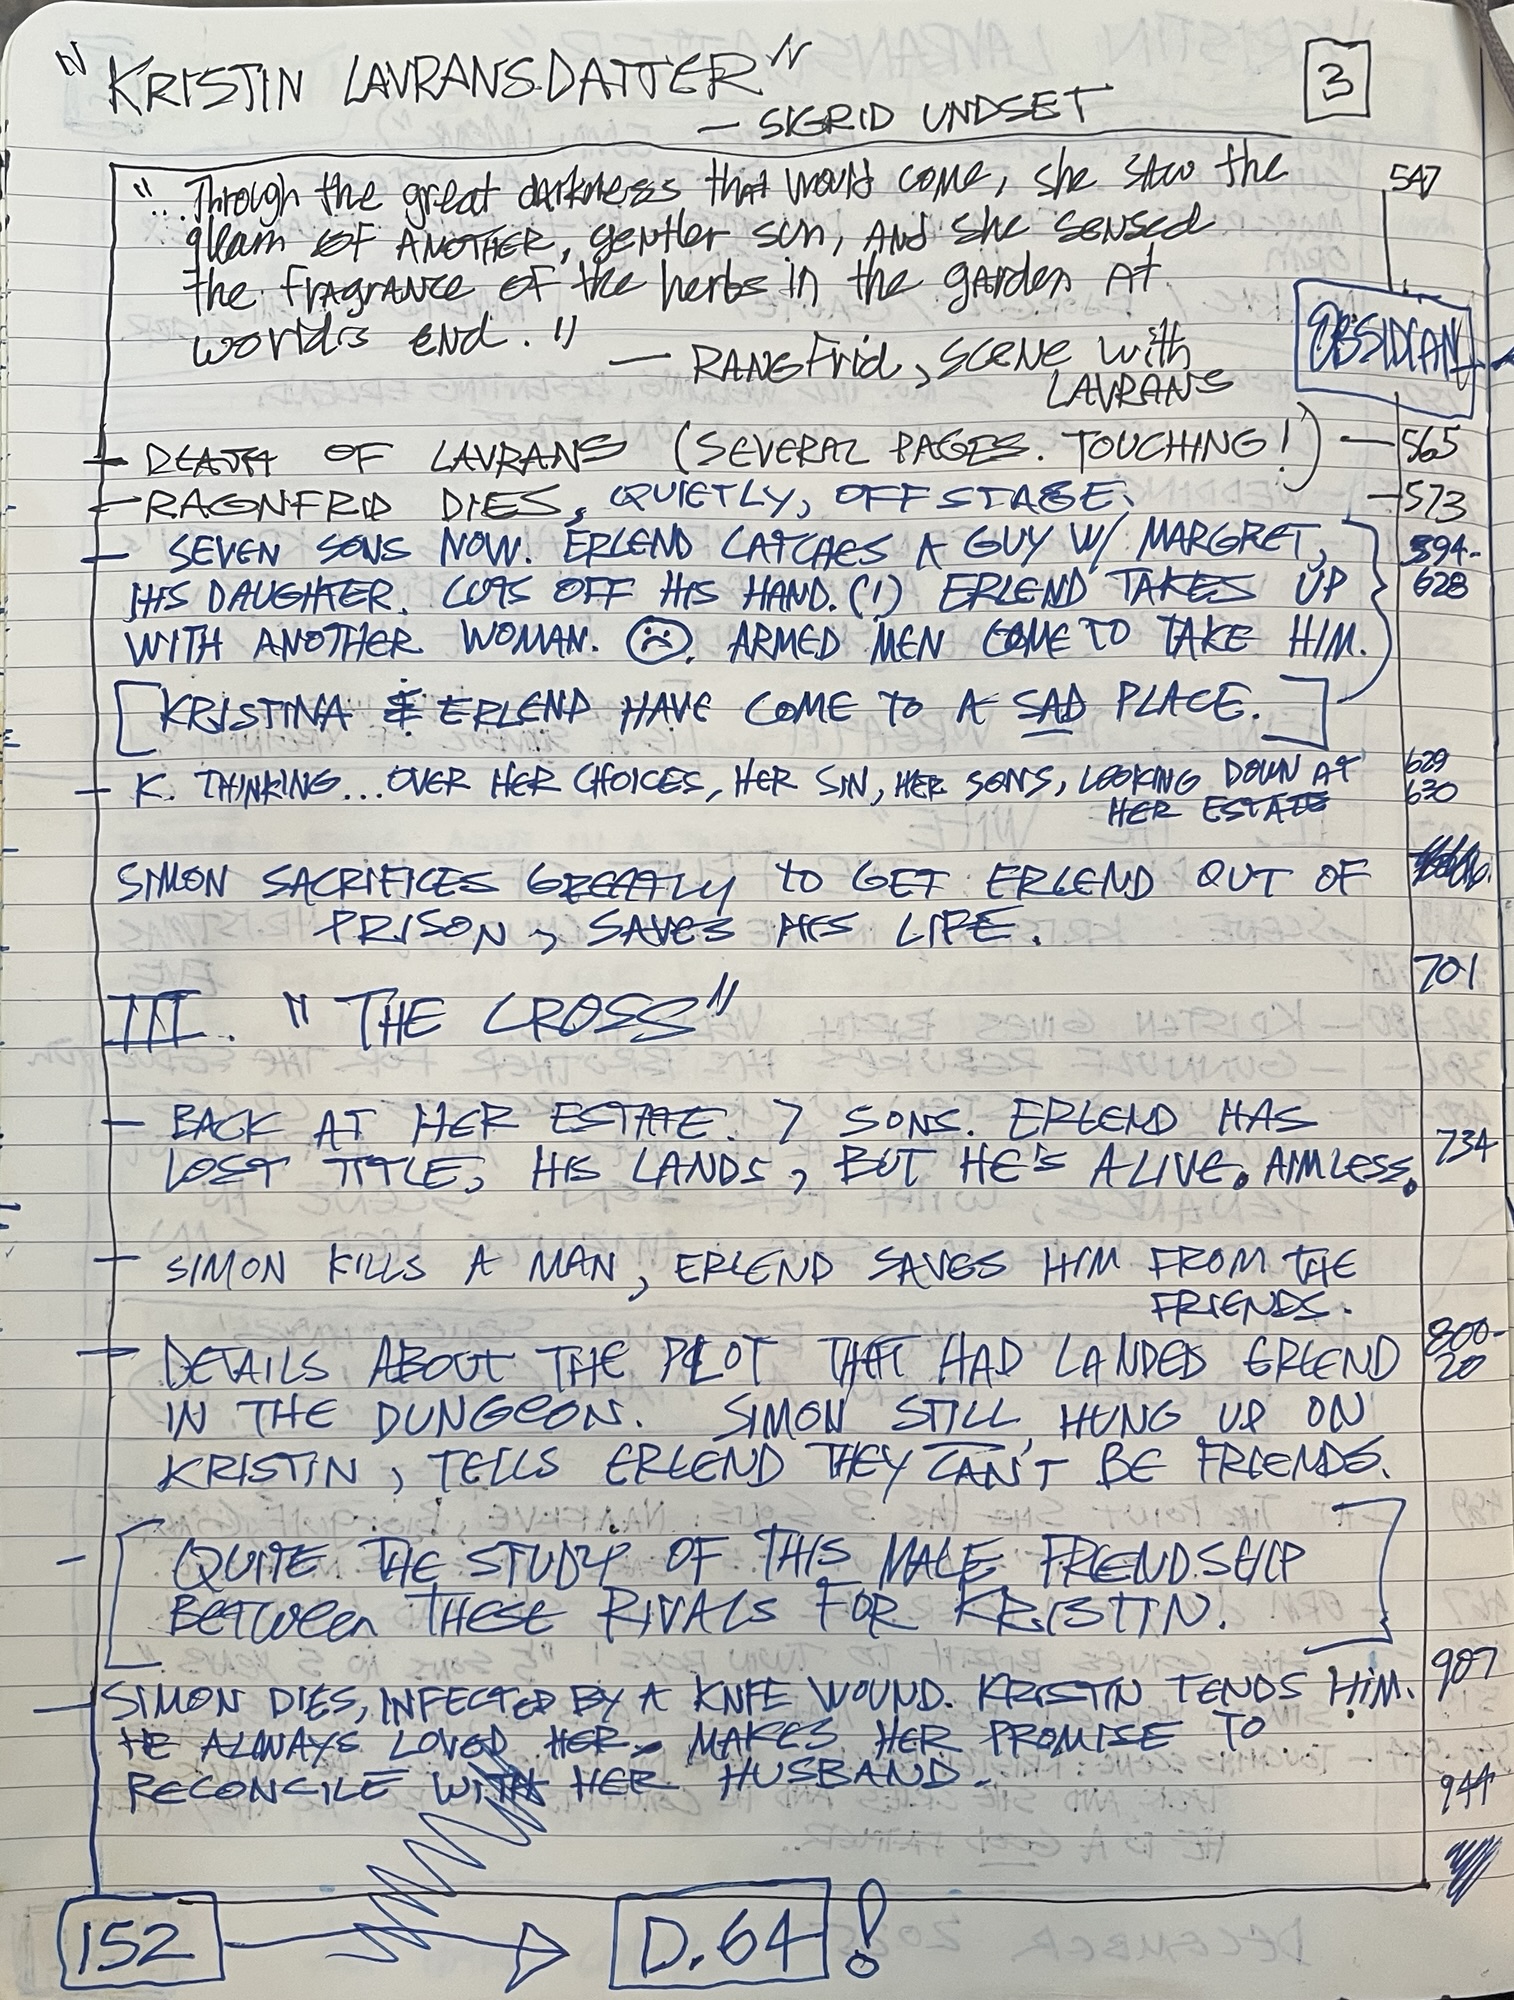 "KRISTIN LAVRANSDATTER"
— SIGRID UNDSET
3
"...Through the great darkness that would come, she saw the
gleam OF ANOTHER, gentler sun, AND she sensed
the fragrance OF the herbs in the garden At
world's end."
— RANGFrid, SCENE with
LAVRANS
547
OBSIDIAN
– DEATH OF LAVRANS (SEVERAL PAGES. TOUCHING!) — 565
– RAGNFRID DIES, QUIETLY, OFF STAGE. – 573
– SEVEN SONS NOW. ERLEND CATCHES A GUY W/ MARGRET,
HIS DAUGHTER. CUTS OFF HIS HAND. (!) ERLEND TAKES UP
WITH ANOTHER WOMAN. ☹. ARMED MEN COME TO TAKE HIM.
594-
628
[KRISTINA & ERLEND HAVE COME TO A SAD PLACE.]
– K. THINKING... OVER HER CHOICES, HER SIN, HER SONS, LOOKING DOWN AT
HER ESTATE
629
630
SIMON SACRIFICES GREATLY TO GET ERLEND OUT OF
PRISON, SAVES HIS LIFE.
701
III. "THE CROSS"
– BACK AT HER ESTATE. 7 SONS. ERLEND HAS
LOST TITLE, HIS LANDS, BUT HE'S ALIVE. AIMLESS.
734
– SIMON KILLS A MAN, ERLEND SAVES HIM FROM THE
FRIENDS.
– DETAILS ABOUT THE PLOT THAT HAD LANDED ERLEND
IN THE DUNGEON. SIMON STILL HUNG UP ON
KRISTIN, TELLS ERLEND THEY CAN'T BE FRIENDS.
800-
20
– [QUITE THE STUDY OF THIS MALE FRIENDSHIP
BETWEEN THESE RIVALS FOR KRISTIN.]
– SIMON DIES, INFECTED BY A KNIFE WOUND. KRISTIN TENDS HIM.
HE ALWAYS LOVED HER. MAKES HER PROMISE TO
RECONCILE WITH HER HUSBAND.
907
944
152 → D.64!